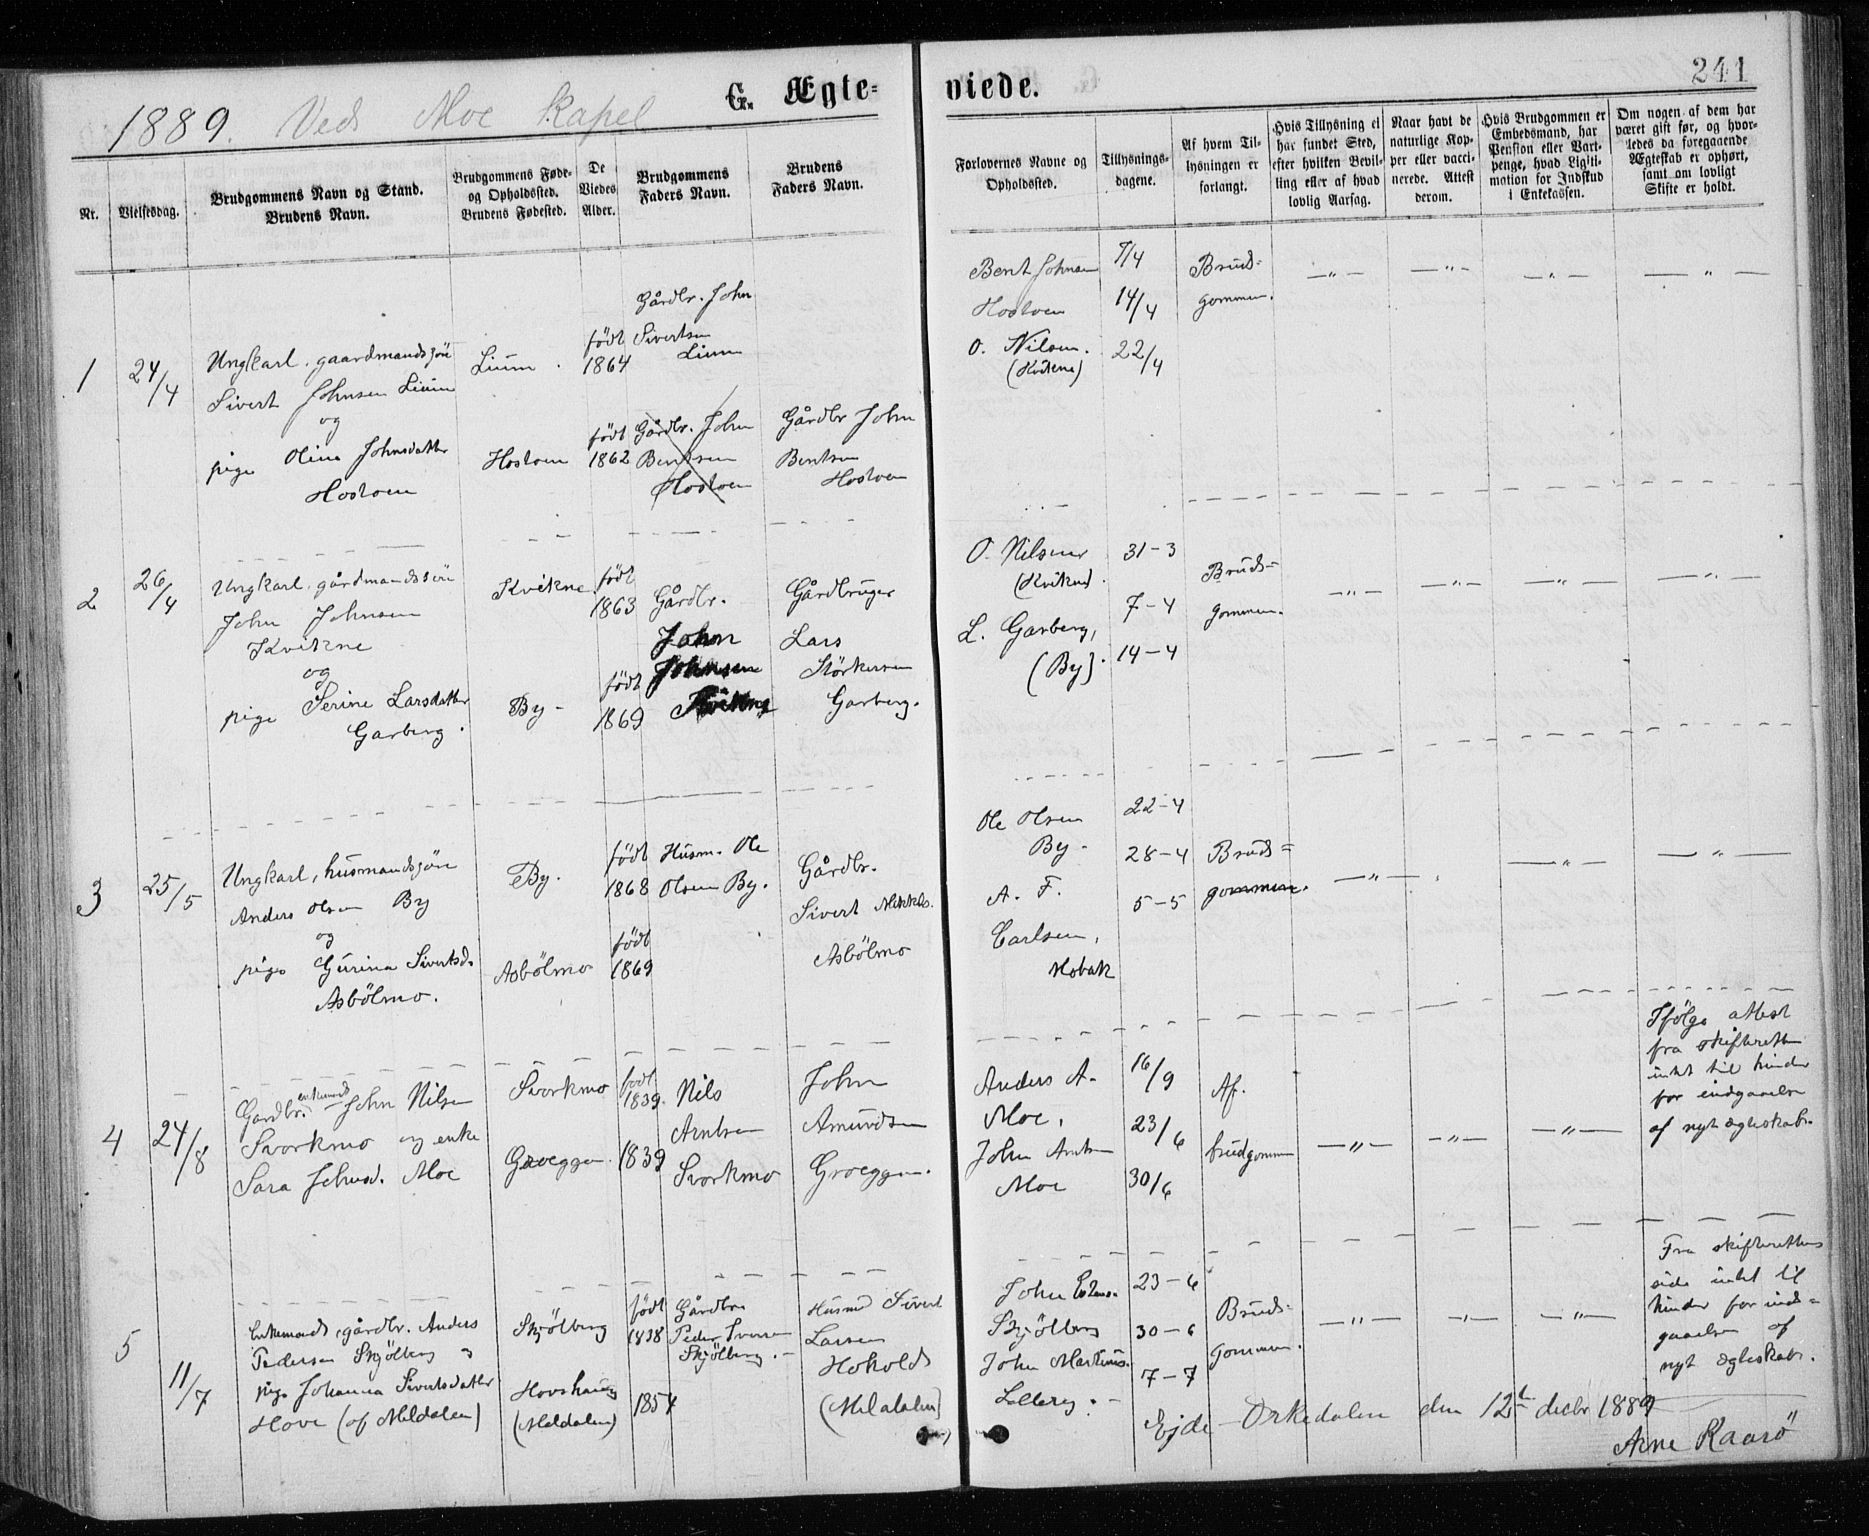 241
1889. Ved Moe Kapel
G. Ægte-
viede.
Nr.
Vielsesdag.
Brudgommens Navn og Stand.
Brudens Navn.
Brudgommens Føde-
og Opholdssted.
Brudens Fødested.
De
Viedes
Alder.
Brudgommens
Faders Navn.
Brudens
Faders Navn.
Forlovernes Navne og
Opholdssted.
Tillysnings-
dagene.
Af hvem Til-
lysningen er
forlangt.
Hvis Tillysning ei
har fundet Sted,
efter hvilken Bevil-
ling eller af hvad
lovlig Aarsag.
Naar havt de
naturlige Kop-
per eller vacci-
nerede. Attest
derom.
Hvis Brudgommen er
Embedsmand, har
Pension eller Vart-
penge, hvad Ligiti-
mation for Indskud
i Enkekassen.
Om nogen af dem har
været gift før, og hvor-
ledes da foregaaende
Ægteskab er ophørt,
samt om lovligt
Skifte er holdt.
1
24/4
Ungkarl. gaardmandssön
Sivert Johnsen Lium
og
pige Olina Johnsdatter
Hostoen
Lium.
Hostoen
födt
1864
födt
1862
Gårdbr. John
Sivertsen
Lium
Gårdbr. John
Bentsen
Hostoen
Gårdbr John
Bentsen
Hostoen
Bent Johnsen
Hostoen
O. Nilsen.
(Kvikne)
7/4
14/4
22/4
Brud=
gommen.
—"— —"— —"— —"—
2
26/4
Ungkarl. gårdmandssön
John Johnsen
Kvikne
og
pige Serine Larsdatter
Garberg.
Kvikne
By -
födt
1863
födt
1869
Gårdbr.
John
Johnsen
Kvikne
Gårdbruger
Lars
Störkersen
Garberg.
O. Nilsen
(Kvikne).
L. Garberg,
(By).
31-3
7-4
14-4
Brud=
gommen.
—"— —"— —"— —"—
3
25/5
Ungkarl, husmandssön
Anders Olsen By
og
pige Gurina Sivertsd.
Asbölmo.
By.
Asbölmo
födt
1868
födt
1869
Husm. Ole
Olsen By.
Gårdbr.
Sivert
Asbölmo
Ole Olsen
By.
A. F.
Carlsen,
Hobak
22-4
28-4
5-5
Brud=
gommen.
—"— —"— —"—
4
24/8
enkemand
Gardbr. John Nilsen
Svorkmo og enke
Sara Johnsd. Moe
Svorkmo
Groeggen.
födt
1839.
1839
Nils
Arntsen
Svorkmo
John
Amundsen
Groeggen.
Anders A.
Moe,
John Arntsen
Moe
16/9
23/6
30/6
Af.
brudgommen
—"— —"— —"—
Ifölge attest
fra skifteretten
intet til hinder
for indgaaelse
af nyt ægteskab.
5
11/7
Enkemand, gårdbr. Anders
Pedersen Skjölberg og
pige Johanna Sivertsdatter
Hove (af Meldalen)
Skjölberg
Hovshaug
(Meldalen)
födt
1838
1854
Gårdbr.
Peder Iversen
Skjölberg. -
Husmd Sivert
Larsen
Hokolds
(Meldalen)
John
Skjölberg
John Martinus.
23-6
30-6
7-7
Brud=
gommen.
—"— —"— —"—
Fra skifterettens
side intet til
hinder for ind=
gaaelsen af
nyt ægteskab.
Ejde - Orkedalen den 12te decbr 1889
Arne Raarö